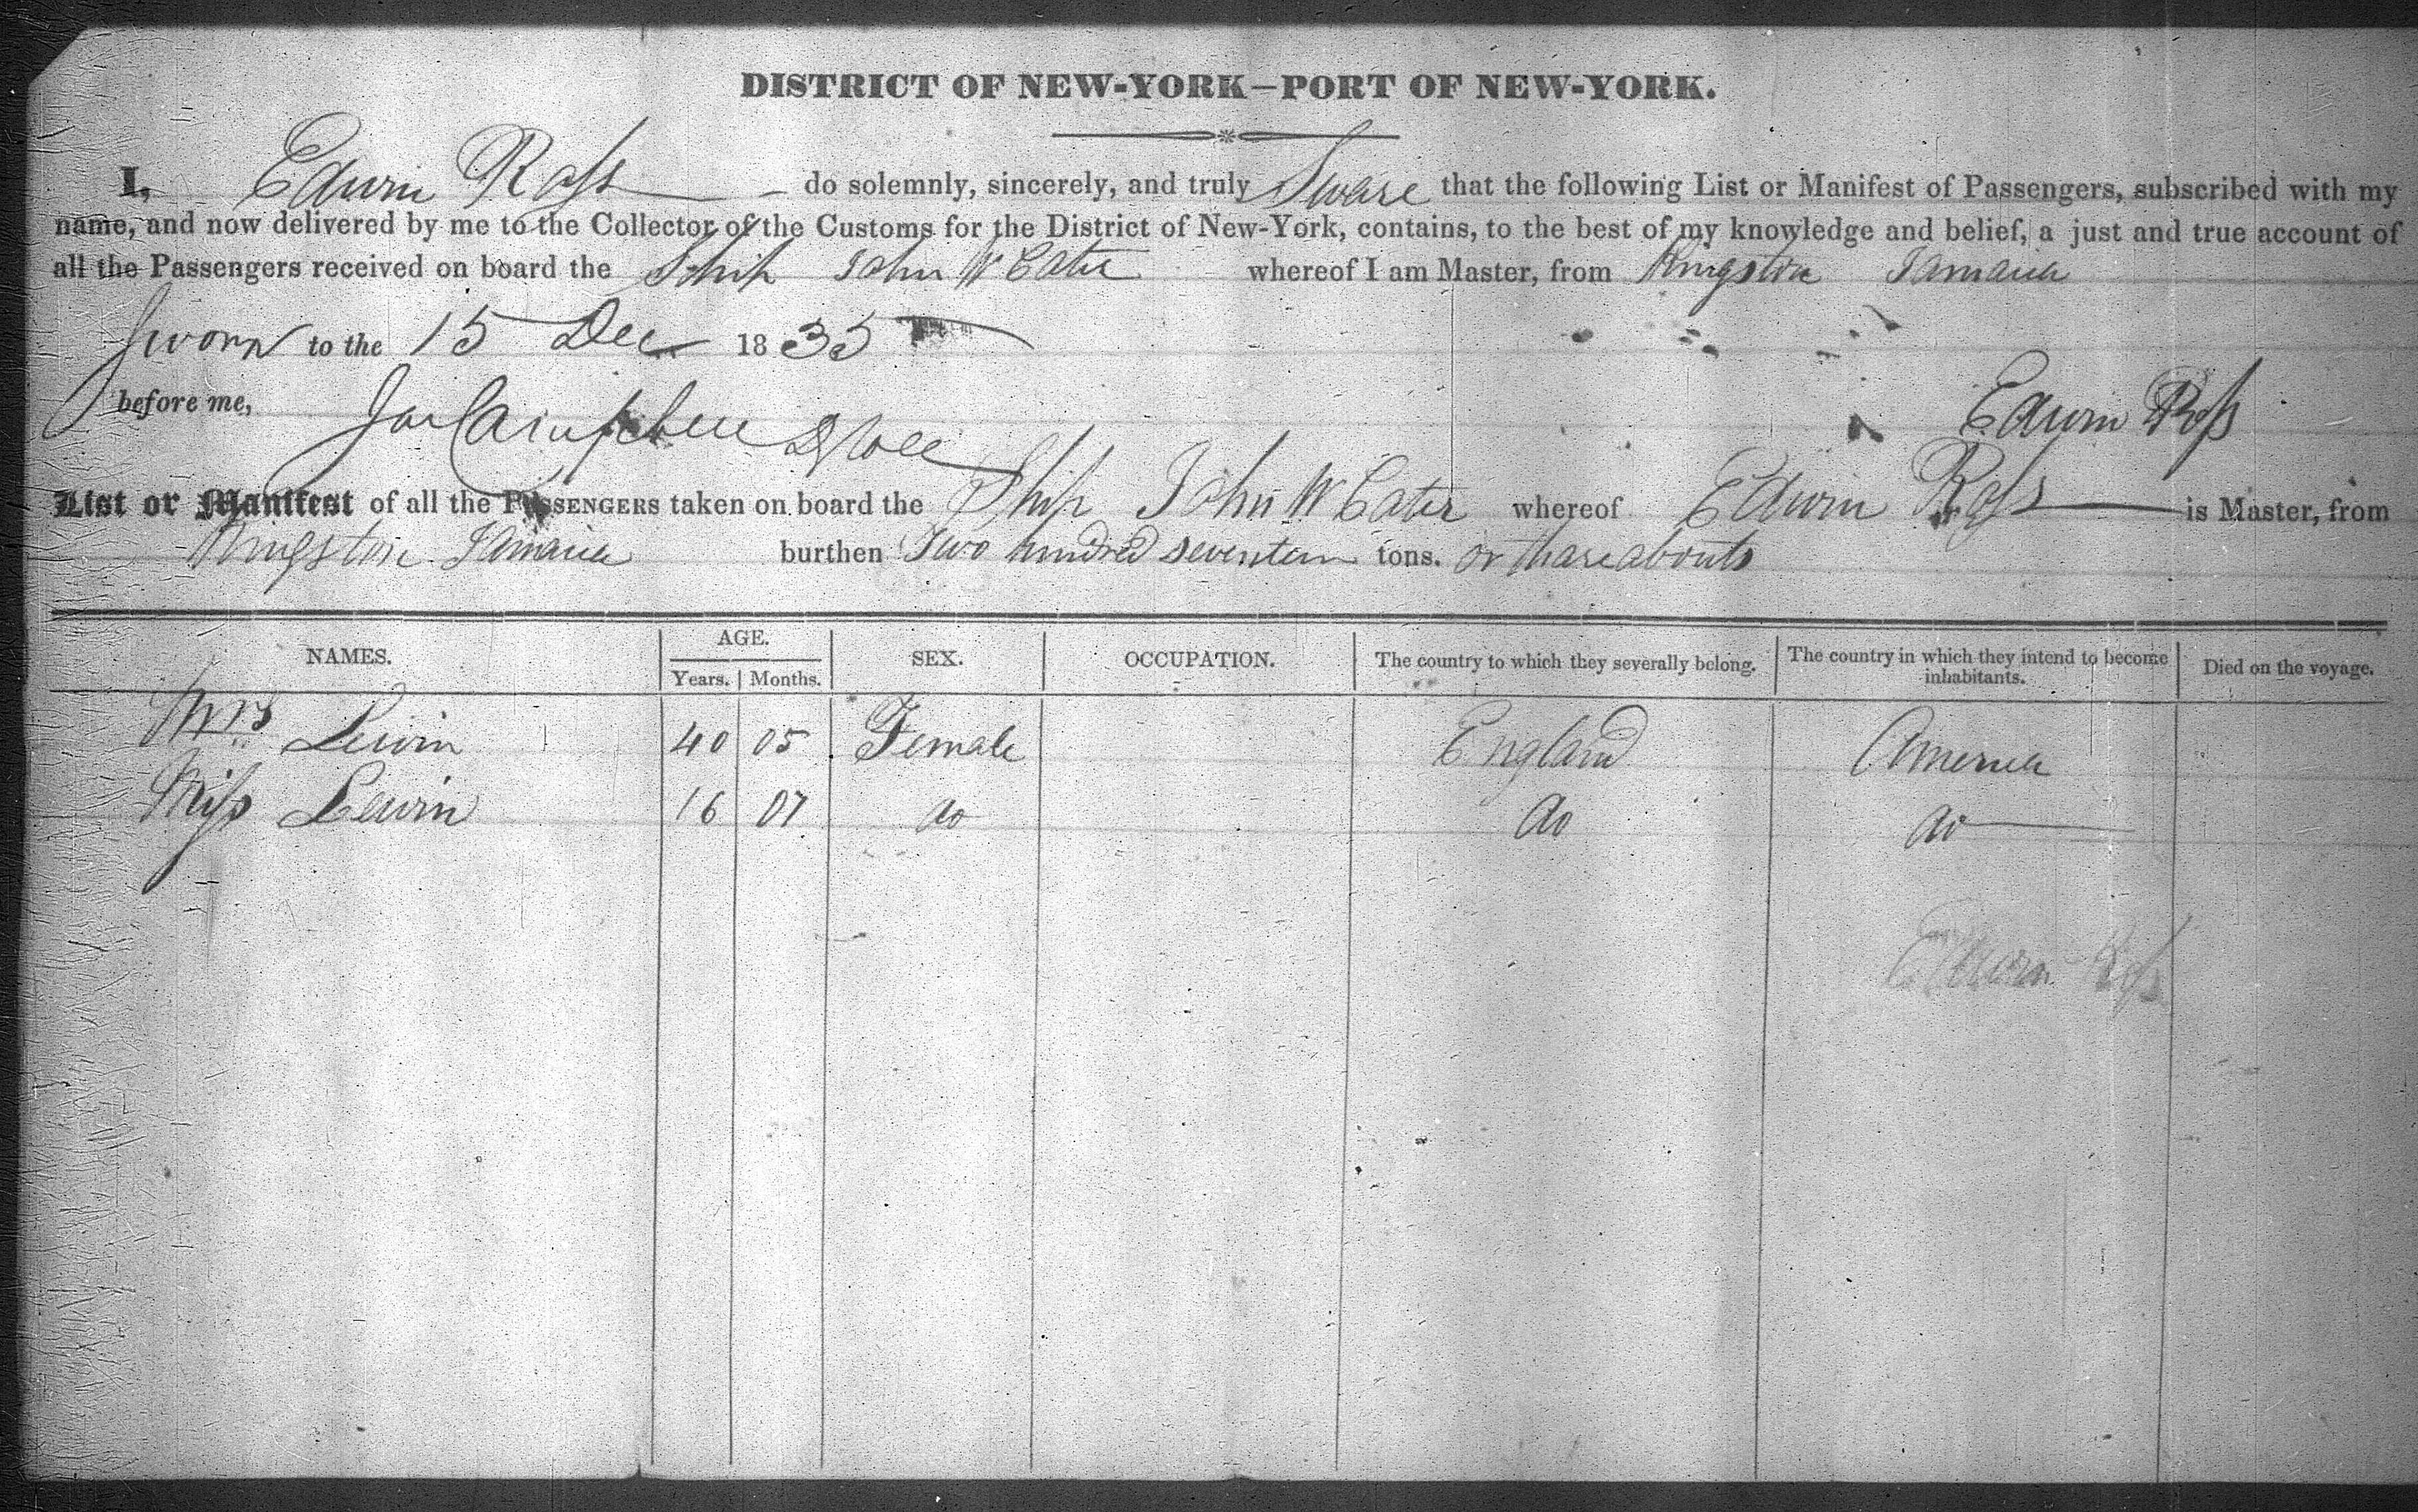 DISTRICT OF NEW-YORK—PORT OF NEW-YORK.
I, Edwin Ross — do solemnly, sincerely, and truly Sware that the following List or Manifest of Passengers, subscribed with my
name, and now delivered by me to the Collector of the Customs for the District of New-York, contains, to the best of my knowledge and belief, a just and true account of
all the Passengers received on board the Ship John W Cater whereof I am Master, from Kingston Jamaica
Sworn to the 15 Dec 1835
before me, Edwin Ross
Jas Campbell
List or Manifest of all the PASSENGERS taken on board the Ship John W Cater whereof Edwin Ross is Master, from
Kingston Jamaica burthen Two hundred seventeen tons. or thareabouts
NAMES. AGE. Years. Months. SEX. OCCUPATION. The country to which they severally belong. The country in which they intend to become inhabitants. Died on the voyage.
Mrs Lewin 40 05 Female England America
Miss Lewin 16 07 do do do
Edwin Ross